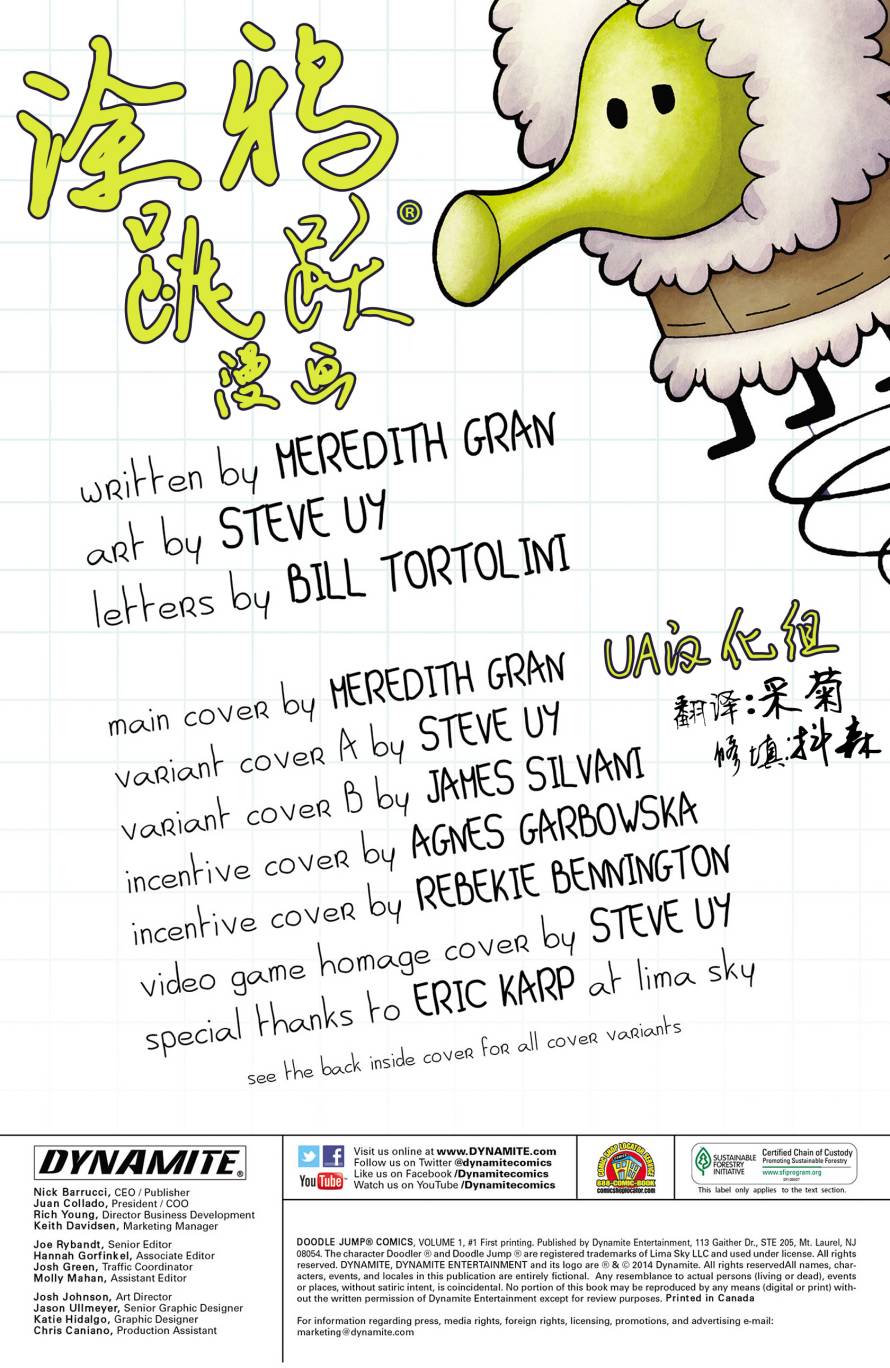 涂鸦
跳跃®
漫画
written by MEREDITH GRAN
art by STEVE UY
letters by BILL TORTOLINI
UA汉化组
翻译:采菊
修填:抖森
main cover by MEREDITH GRAN
variant cover A by STEVE UY
variant cover B by JAMES SILVANI
incentive cover by AGNES GARBOWSKA
incentive cover by REBEKIE BENNINGTON
video game homage cover by STEVE UY
special thanks to ERIC KARP at lima sky
see the back inside cover for all cover variants
DYNAMITE®
Nick Barrucci, CEO / Publisher
Juan Collado, President / COO
Rich Young, Director Business Development
Keith Davidsen, Marketing Manager
Joe Rybandt, Senior Editor
Hannah Gorfinkel, Associate Editor
Josh Green, Traffic Coordinator
Molly Mahan, Assistant Editor
Josh Johnson, Art Director
Jason Ullmeyer, Senior Graphic Designer
Katie Hidalgo, Graphic Designer
Chris Caniano, Production Assistant
Visit us online at www.DYNAMITE.com
Follow us on Twitter @dynamitecomics
Like us on Facebook /Dynamitecomics
Watch us on YouTube /Dynamitecomics
You Tube
COMIC SHOP LOCATOR SERVICE
888-COMIC-BOOK
comicshoplocator.com
SUSTAINABLE
FORESTRY
INITIATIVE
Certified Chain of Custody
Promoting Sustainable Forestry
www.sfiprogram.org
This label only applies to the text section.
DOODLE JUMP® COMICS, VOLUME 1, #1 First printing. Published by Dynamite Entertainment, 113 Gaither Dr., STE 205, Mt. Laurel, NJ
08054. The character Doodler ® and Doodle Jump ® are registered trademarks of Lima Sky LLC and used under license. All rights
reserved. DYNAMITE, DYNAMITE ENTERTAINMENT and its logo are ® & © 2014 Dynamite. All rights reservedAll names, char-
acters, events, and locales in this publication are entirely fictional. Any resemblance to actual persons (living or dead), events
or places, without satiric intent, is coincidental. No portion of this book may be reproduced by any means (digital or print) with-
out the written permission of Dynamite Entertainment except for review purposes. Printed in Canada
For information regarding press, media rights, foreign rights, licensing, promotions, and advertising e-mail:
marketing@dynamite.com